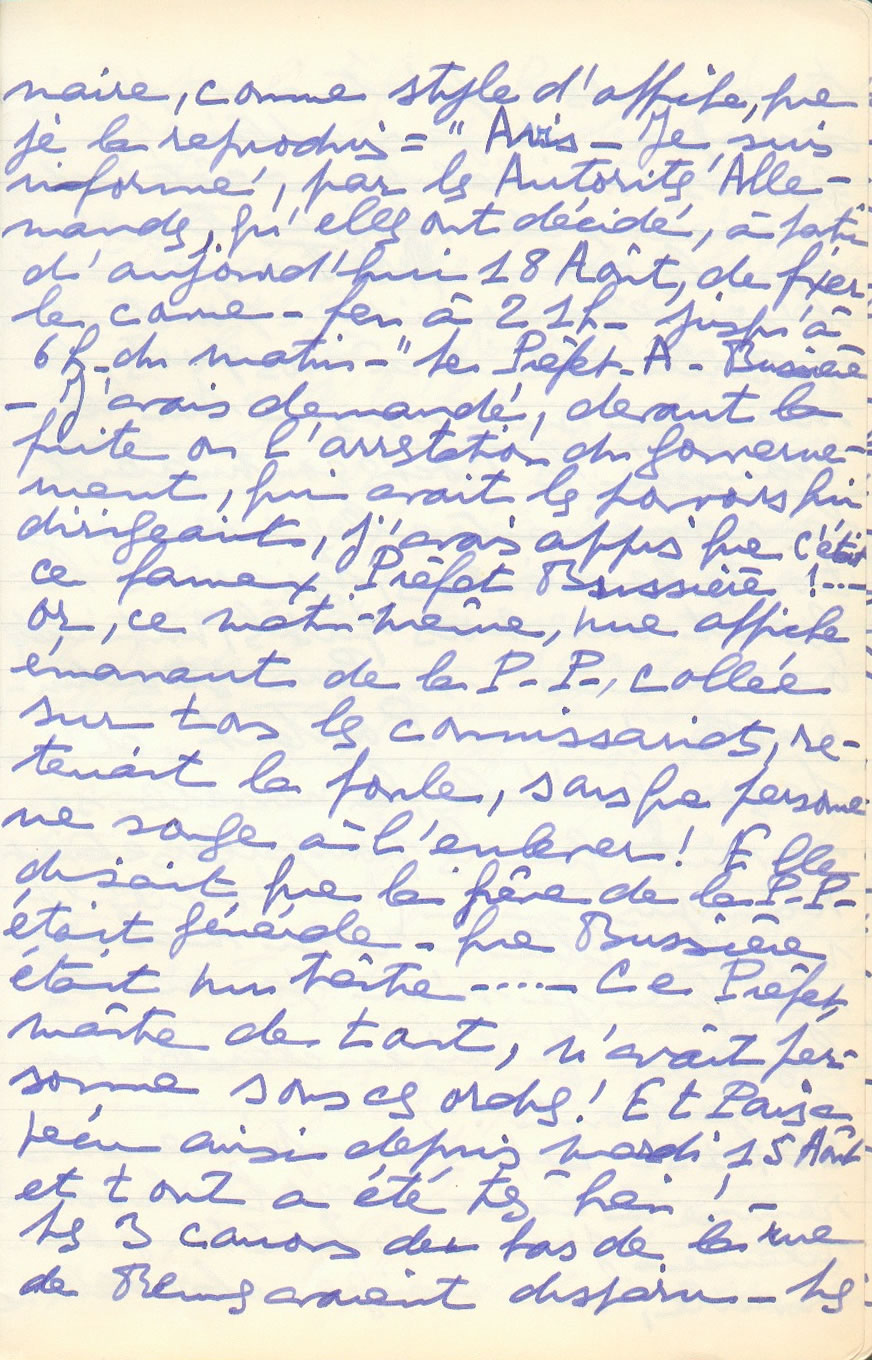 naire, comme style d'affiche, que
je la reproduis = " Avis – Je suis
informé, par les Autorités Alle-
mandes, qu'elles ont décidé, à partir
d'aujourd'hui 18 Août, de fixer
le couvre-feu à 21h – jusqu'à
6h – du matin – " Le Préfet – A – Bussière
– J'avais demandé, devant la
fuite ou l'arrestation du gouverne-
ment, qui avait les pouvoirs qui
dirigeait, j'avais appris que c'était
ce fameux Préfet Bussière !....
or, ce matin-même, une affiche
émanant de la P-P-, collée
sur tous les commissariats, re-
tenait la foule, sans que personne
ne songe à l'enlever ! Elle
disait que la grève de la P-P-
était générale – que Bussière
était un traître ..... Ce Préfet,
maître de tout, n'avait per-
sonne sous ces ordres ! Et Paris a
vécu ainsi depuis mardi 15 Août
et tout a été très bien ! –
Les 3 canons du bas de la rue
de avaient disparu – les